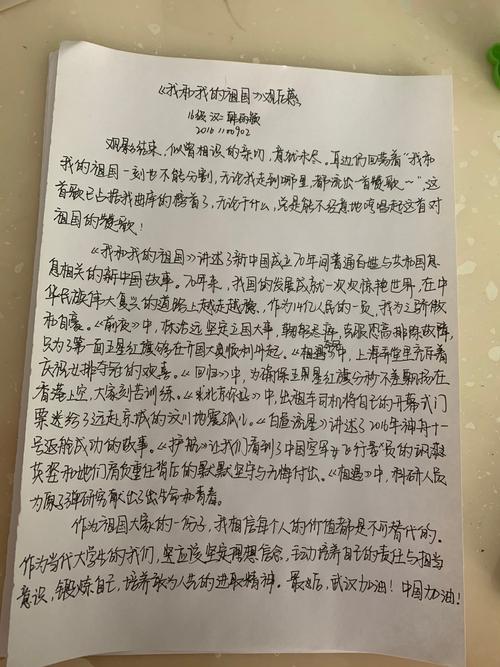 《我和我的祖国》观后感
16级 汉二
2016110902
观影结束，似曾相识的亲切，意犹未尽。耳边仍回荡着“我和
我的祖国一刻也不能分割，无论我走到哪里，都流出一首赞歌～”，这
首歌已占据我曲库的榜首了，无论干什么，总是能不经意地哼唱起这首对
祖国的赞歌！
《我和我的祖国》讲述了新中国成立70年间普通百姓与共和国息
息相关的新中国故事。70年来，我国的发展成就一次次惊艳世界，在中
华民族伟大复兴的道路上越走越稳，作为14亿人民的一员，我为之骄傲
和自豪。《前夜》中，林治远坚定立国大事，克服恐高排除故障，
只为了第一面五星红旗能够在开国大典顺利升起。《相遇》中，上海弄堂里充斥着
庆祝女排夺冠的欢喜。《回归》中，为确保五星红旗分秒不差飘扬在
香港上空，大家刻苦训练。《北京你好》中，出租车司机将自己的开幕式门
票送给了远赴京城的汶川地震孤儿。《白昼流星》讲述了2016年神舟十一
号返航成功的故事。《护航》让我们看到了中国空军女飞行员的飒爽
英姿和她们肩负重任背后的默默坚守与无悔付出。《相遇》中，科研人员
为原子弹研究献出了生命和青春。
作为祖国大家的一份子，我相信每个人的价值都是不可替代的。
作为当代大学生的我们，更应该坚定理想信念，主动培养自己的责任与担当
意识，锻炼自己，培养敢为人先的进取精神。最后，武汉加油！中国加油！